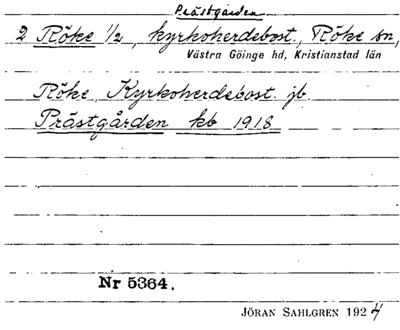 Prästgården
2 Röke 1/2, kyrkoherdebost., Röke sn,
Västra Göinge hd, Kristianstad län
Röke, Kyrkoherdebost. jb
Prästgården kb 1918
Nr 5364.
JÖRAN SAHLGREN 1924